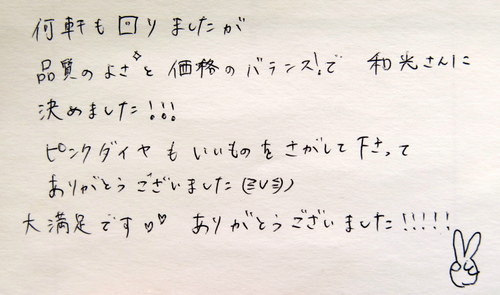 何軒も回りましたが
品質のよさと価格のバランス!で 和光さんに
決めました!!!
ピンクダイヤもいいものをさがして下さって
ありがとうございました(≧∪≦)
大満足です♡♡ ありがとうございました!!!!!